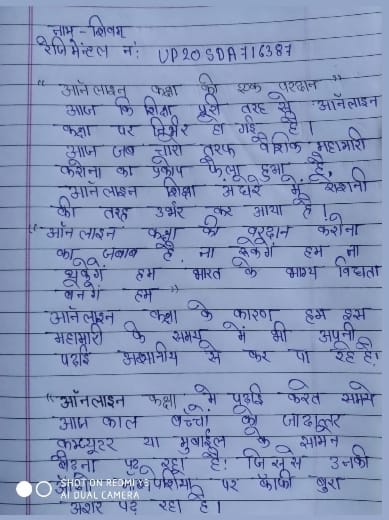 नाम - शिवम
रेजिमेन्टल नं: UP20SDA716387
"ऑनलाइन कक्षा की एक वरदान"
आज कि शिक्षा पूरी तरह से ऑनलाइन
कक्षा पर निर्भर हो गई है।
आज जब चारो तरफ वैशिक महामारी
करोना का प्रकोप फैला हुआ है,
ऑनलाइन शिक्षा अंधेरे में रोशनी
की तरह उभर कर आया है।
"ऑनलाइन कक्षा की वरदान करोना
का जवाब है ना रुकेगें हम ना
झुकेगें हम भारत के भाग्य विधाता
बनगें हम"
ऑनलाइन कक्षा के कारण हम इस
महामारी के समय में भी अपनी
पढाई आसानीय से कर पा रहे है।
"ऑनलाइन कक्षा में पढाई करते समय
आज काल बच्चों को जादातर
कम्प्यूटर या मुबाईल के सामने
बैठना पड़ रहा है। जिससे उनकी
पर काफी बुरा
अशर पड़ रहा है।
SHOT ON REDMI
AI DUAL CAMERA